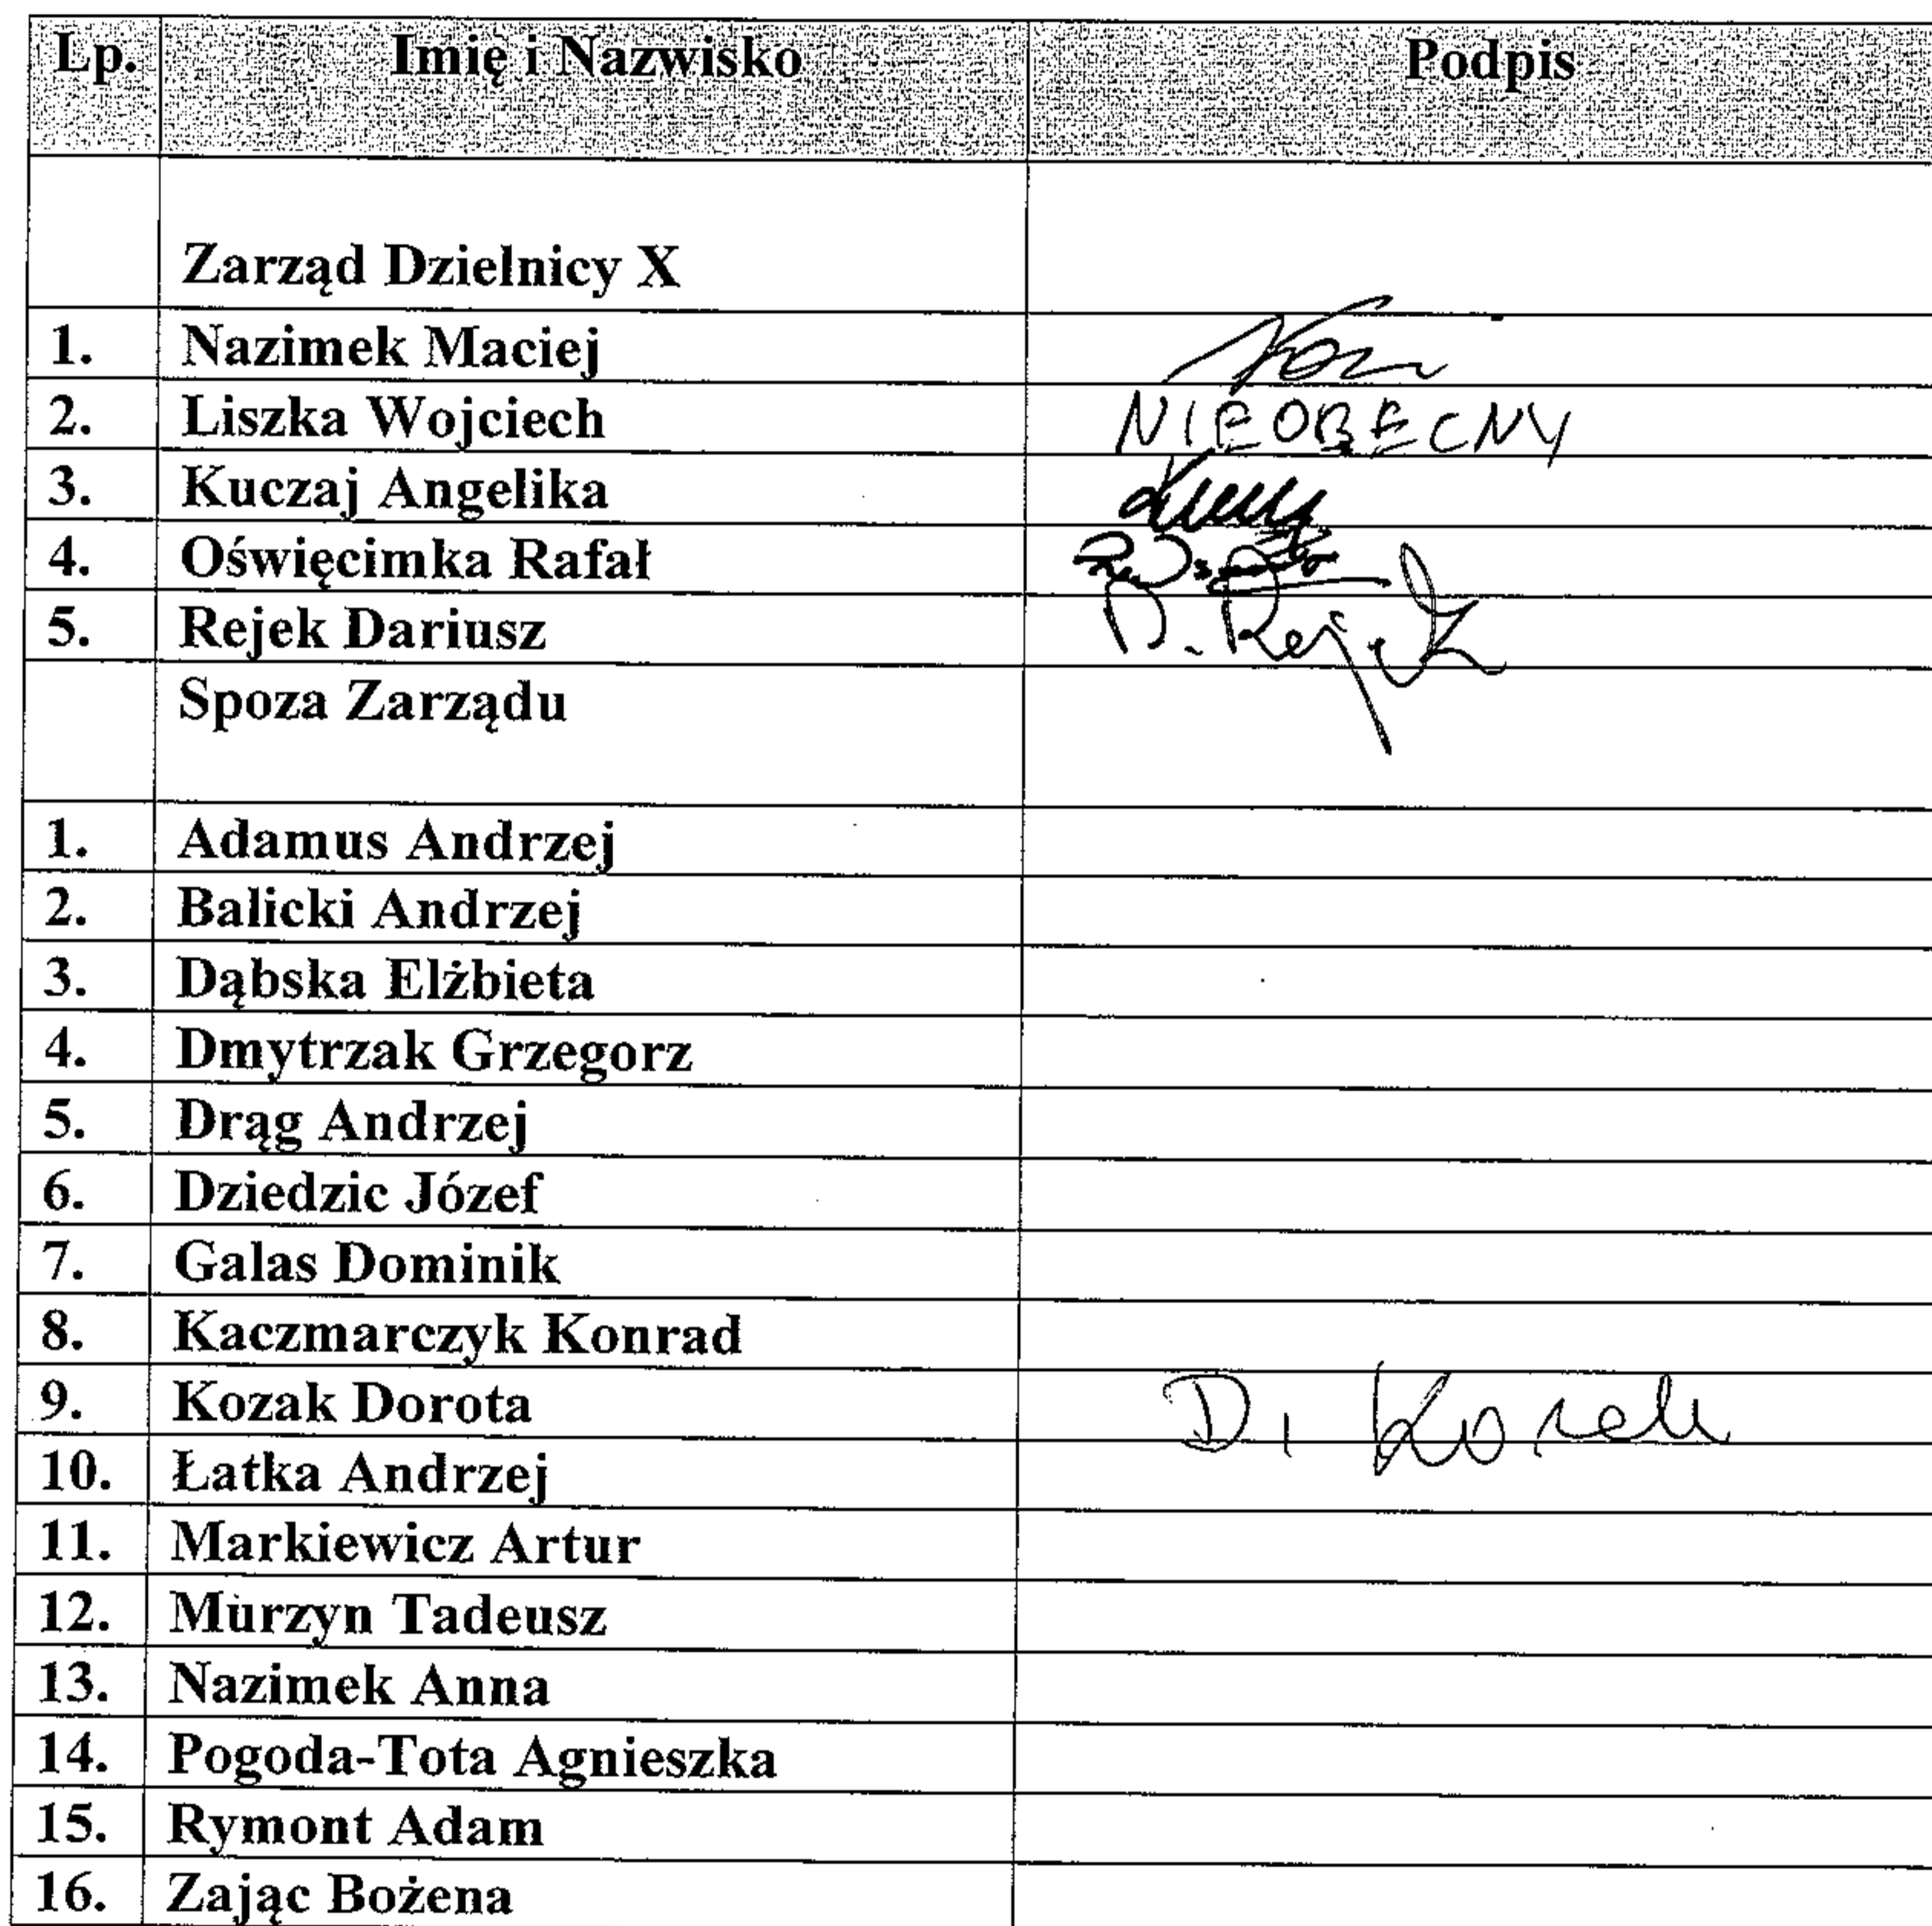 Lp. Imię i Nazwisko Podpis
Zarząd Dzielnicy X
1. Nazimek Maciej
2. Liszka Wojciech NIEOBECNY
3. Kuczaj Angelika
4. Oświęcimka Rafał
5. Rejek Dariusz D. Rejek
Spoza Zarządu
1. Adamus Andrzej
2. Balicki Andrzej
3. Dąbska Elżbieta
4. Dmytrzak Grzegorz
5. Drąg Andrzej
6. Dziedzic Józef
7. Galas Dominik
8. Kaczmarczyk Konrad
9. Kozak Dorota D. Kozak
10. Łatka Andrzej
11. Markiewicz Artur
12. Murzyn Tadeusz
13. Nazimek Anna
14. Pogoda-Tota Agnieszka
15. Rymont Adam
16. Zając Bożena